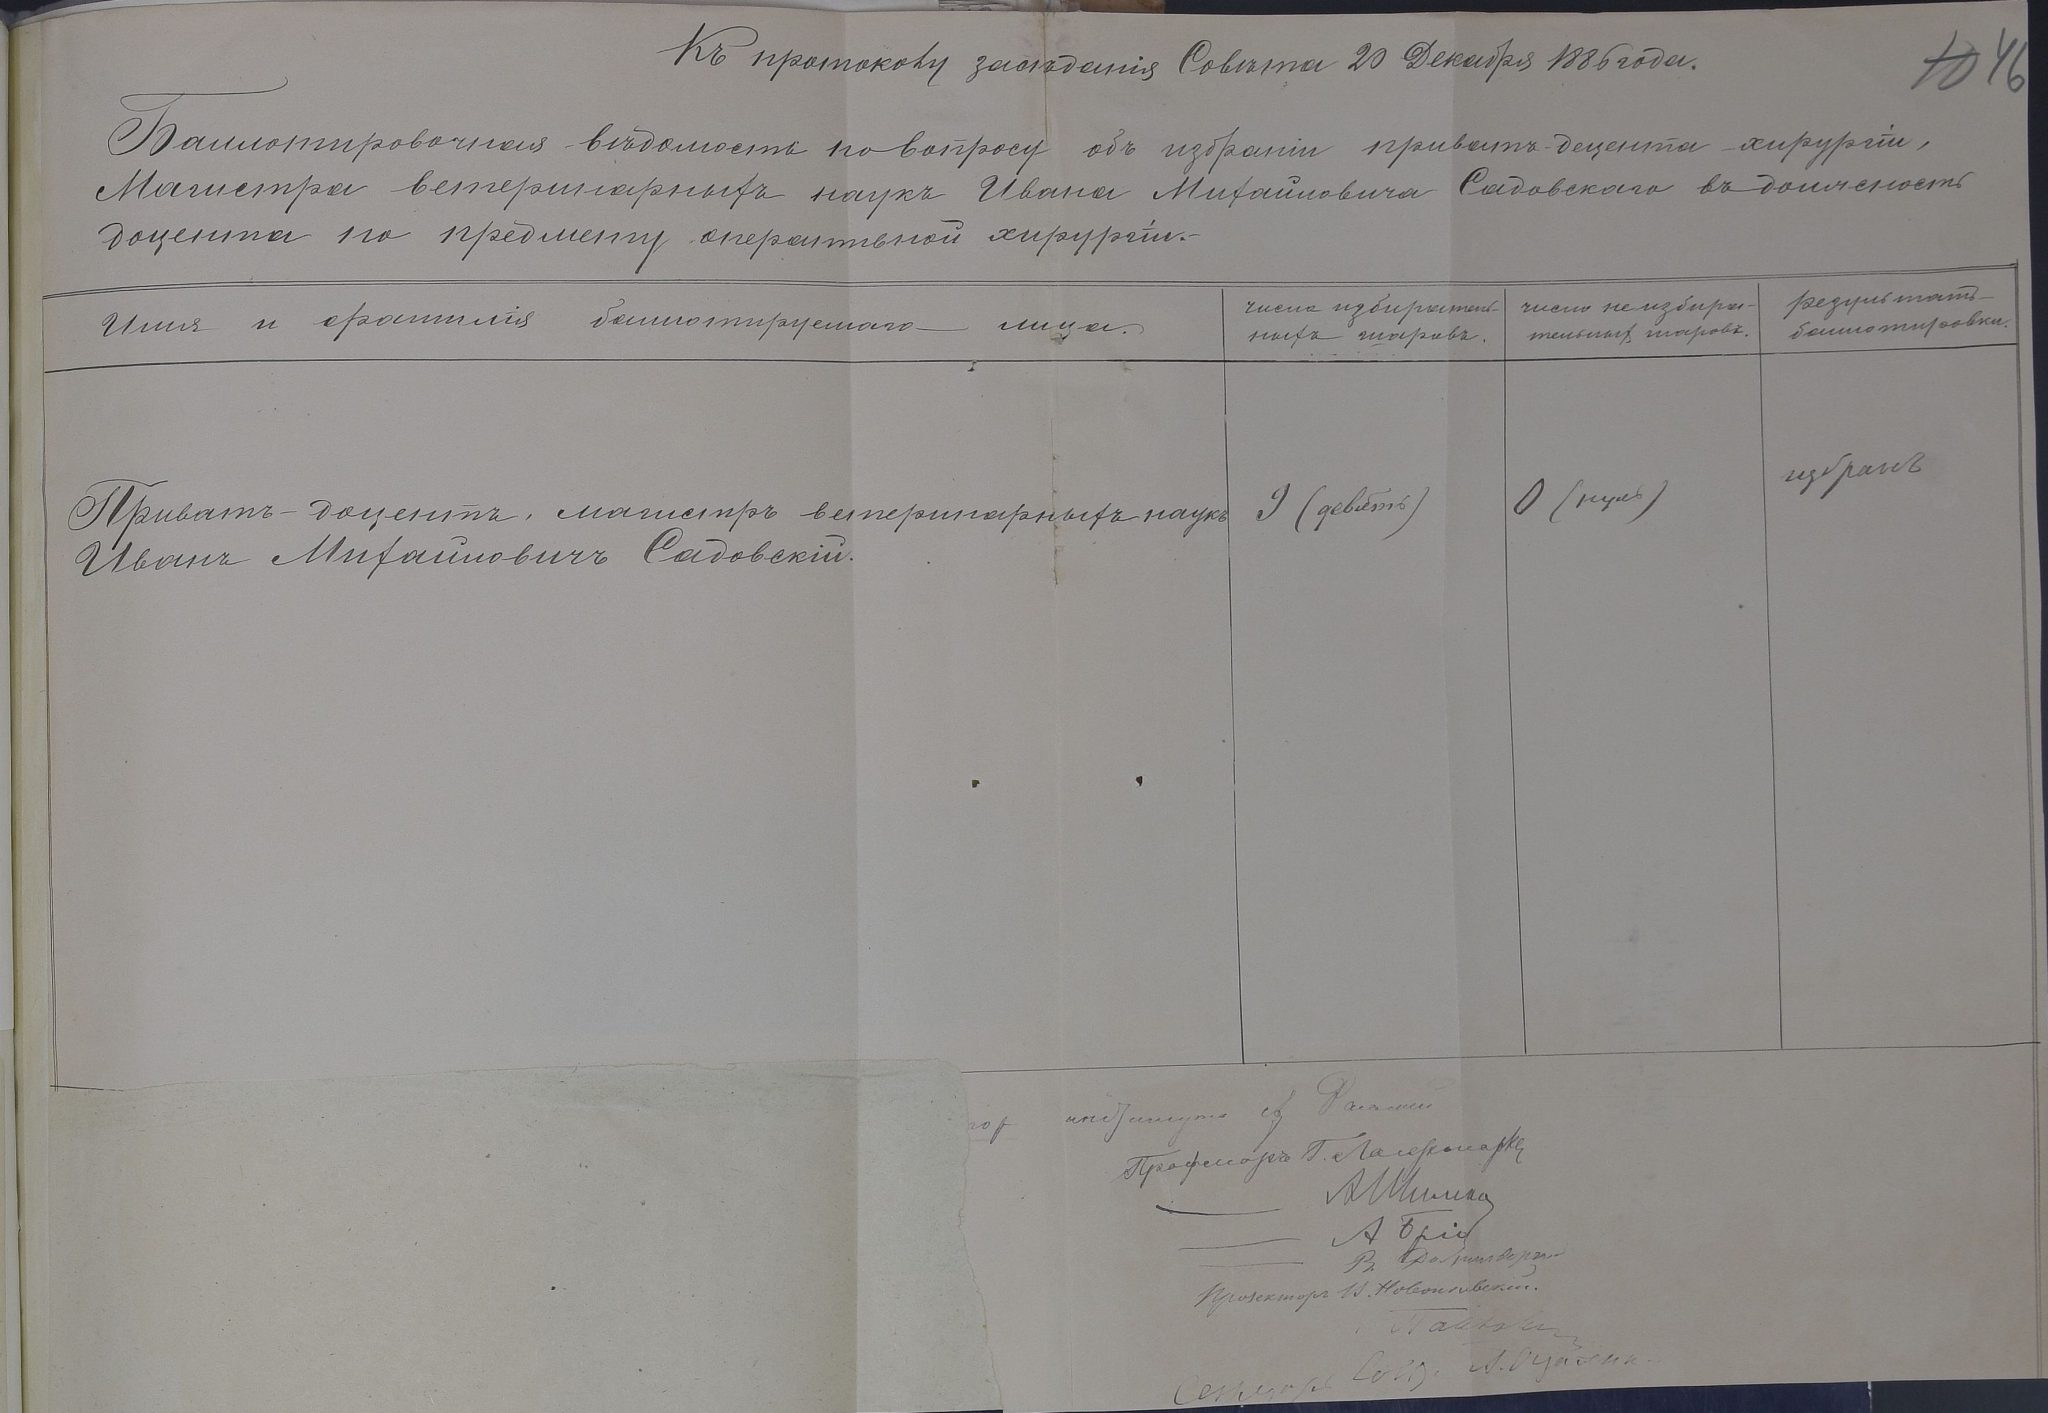 Къ протоколу засѣданія Совѣта 20 Декабря 1886 года.
46
Баллотировочная вѣдомость по вопросу объ избраніи приватъ-доцента хирургіи,
Магистра ветеринарныхъ наукъ Ивана Михайловича Садовскаго въ должность
доцента по предмету оперативной хирургіи.
Имя и фамилія баллотируемаго лица.
число избиратель-
ныхъ шаровъ.
число неизбира-
тельныхъ шаровъ.
результатъ
баллотировки.
Приватъ-доцентъ, магистръ ветеринарныхъ наукъ
Иванъ Михайловичъ Садовскій.
9 (девять)
0 (нуль)
избранъ
Профессоръ Г.
А
А
Прозекторъ
Секретарь